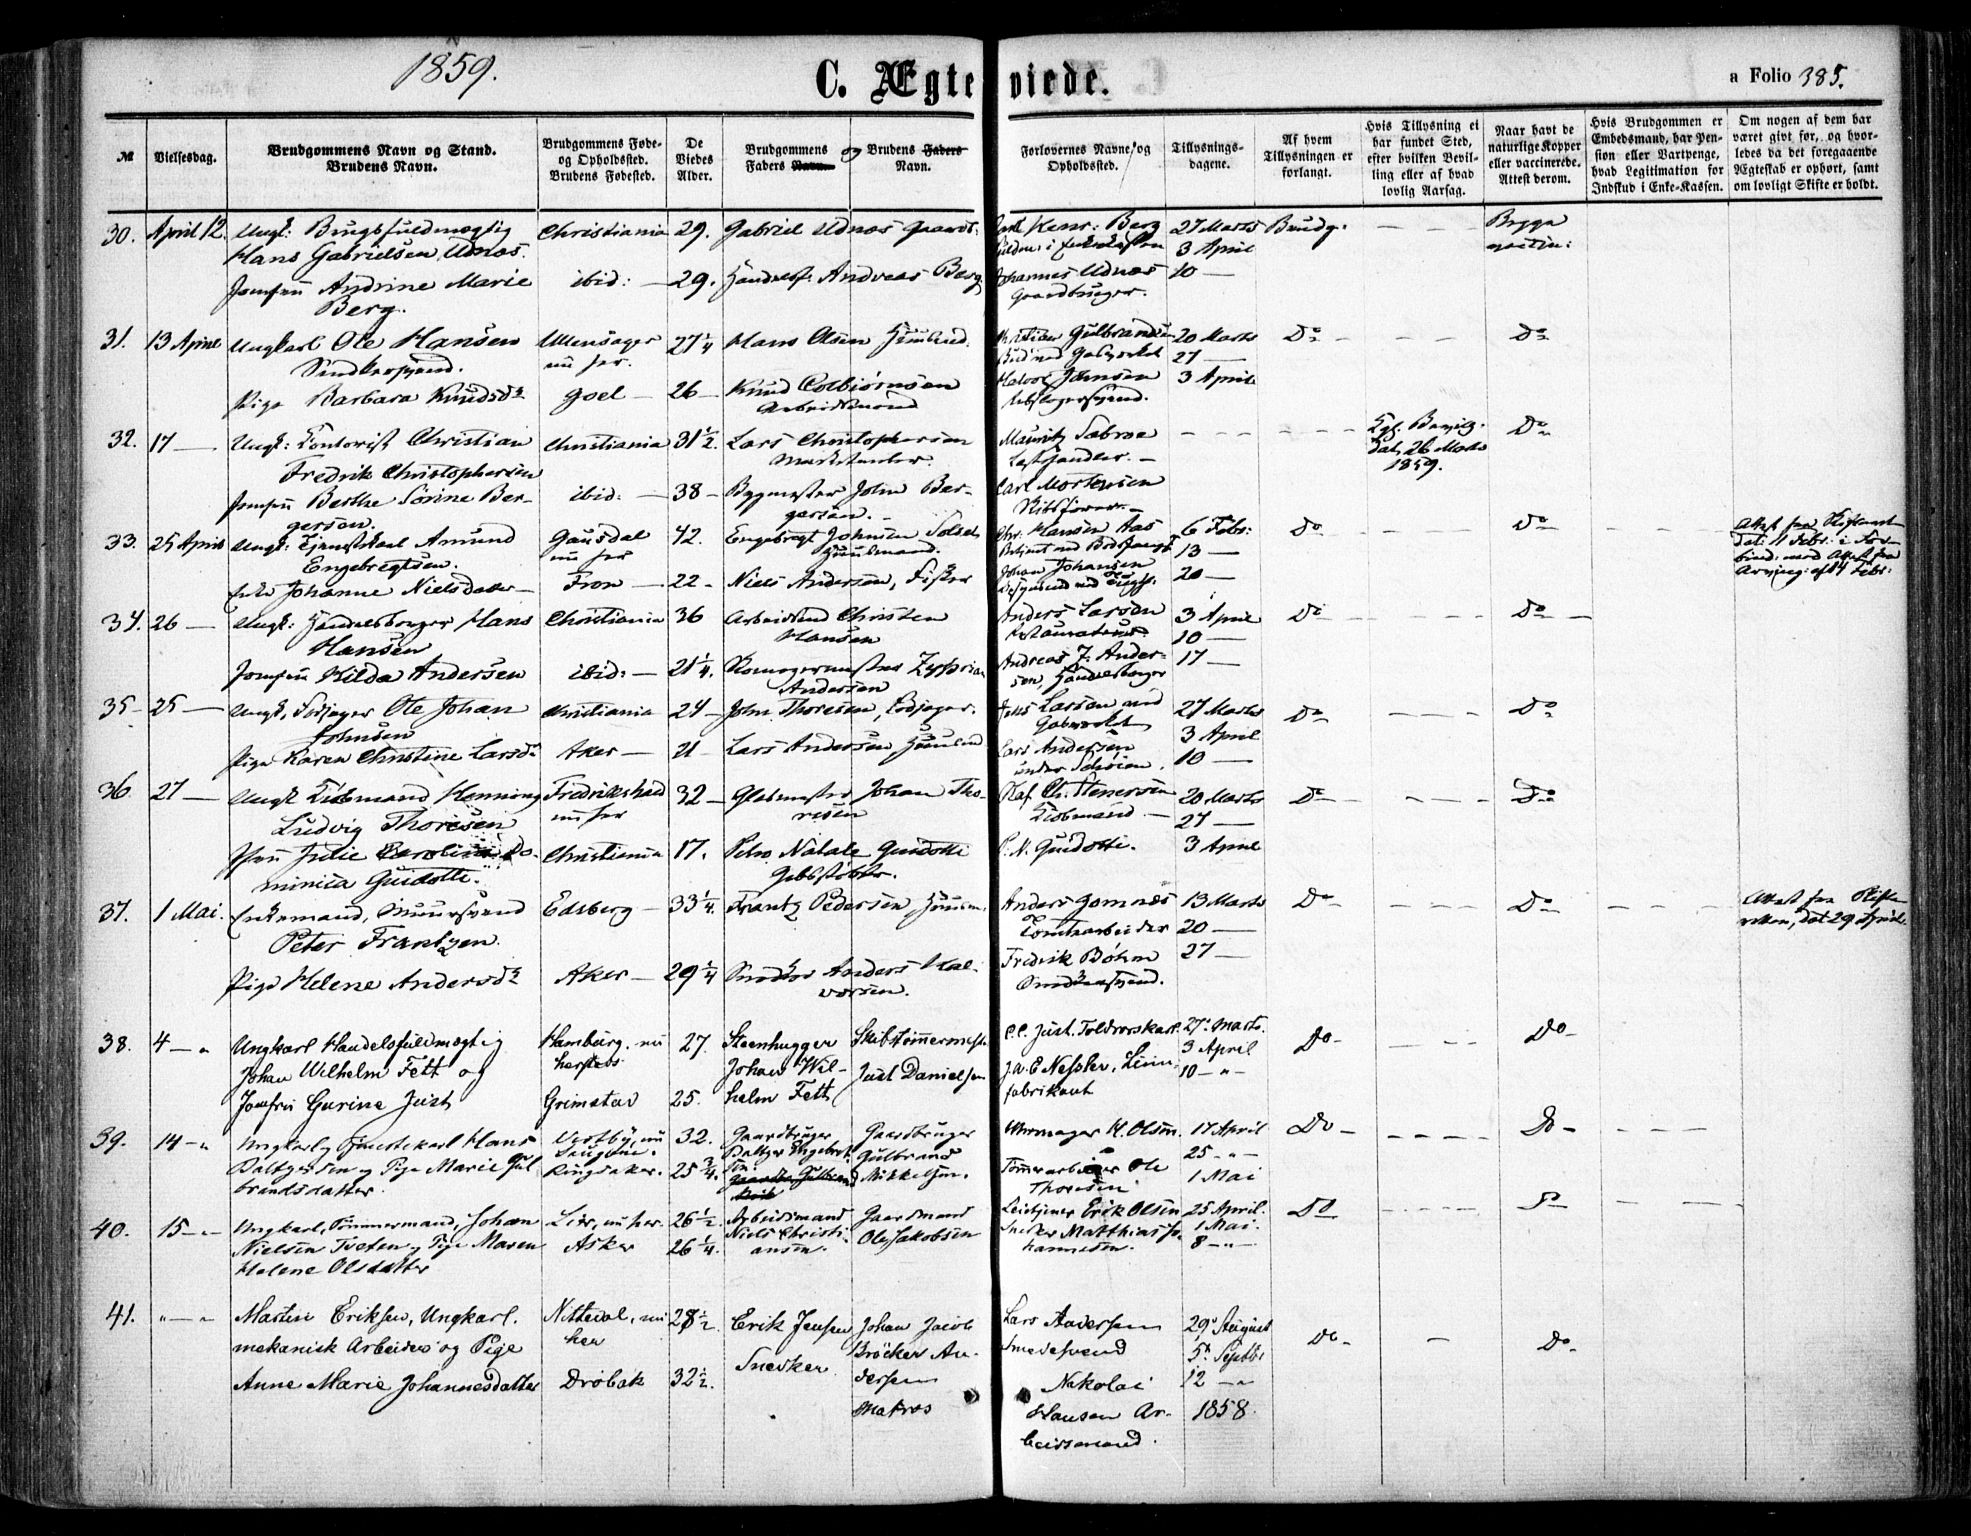 1859.
C. Ægteviede.
a Folio 385.
№
Vielsesdag.
Brudgommens Navn og Stand.
Brudens Navn.
Brudgommens Føde-
og Opholdssted.
Brudens Fødested.
De
Viedes
Alder.
Brudgommens og Brudens Faders
Faders Navn. Navn.
Forlovernes Navne og
Opholdssted.
Tillysnings-
dagene.
Af hvem
Tillysningen er
forlangt.
Hvis Tillysning ei
har fundet Sted,
efter hvilken Bevil-
ling eller af hvad
lovlig Aarsag.
Naar havt de
naturlige Kopper
eller vaccinerede.
Attest derom.
Hvis Brudgommen er
Embedsmand, har Pen-
sion eller Vartpenge,
hvad Legitimation for
Indskud i Enke-Kassen.
Om nogen af dem har
været gift før, og hvor-
ledes da det foregaaende
Ægteskab er ophørt, samt
om lovligt Skifte er holdt.
30. April 12. Ungk: Brugsfuldmægtig Christiania 29. Gabriel Udnæs Gaardb: 27 Marts Brudg. — — Begge
Hans Gabrielsen Udnæs. 3 April vaccin:
Jomfru Andrine Marie ibid: — 29. Andreas Berg Johannes Udnæs 10 —
Berg. Gaardbruger.
31. 13 April Ungkarl Ole Hansen Ullensager 27¼ Hans Olsen Huusmd. Christian Gulbrandsen 20 Marts Do — — Do
Snedkersvend. nu her. 27 —
Pige Barbara Knudsdr Goel — 26 — Knud Colbiørnsen Halvor Jansen 3 April
Arbeidsmand
32. 17 — Ungk: Contorist Christian Christiania 31½. Lars Christophersen Mauritz Sæbroe — — — Kgl. Bevilg. Do
Fredrik Christophersen dat. 26 Marts
1859.
Jomfru Berthe Sørine Ber- ibid: — 38 — Bygmester John Ber- Carl Mortensen
gersen. gersen. — Skibsfører —
33. 25 April Ungk: Tjenestekarl Amund Gausdal 42. Engebregt Johnsen Chr. Hansen Aas 6 Febr: Do — — Do — — Attest fra
Engebregtsen. nu her Huusmand. 13 — dat: 11 Febr: i
Johanne Nielsdatter — Fron — 22 — Niels Andersen, Johan Johansen 20 — med Attest fra
af 14 Febr:
34. 26 — Ungk: Handelsborger Hans Christiania 36 Arbeidsmd Christen Anders Larsen 3 April Do — — Do
Hansen Hansen Restaurateur 10 —
Jomfru Hilda Andersen ibid: — 21¼. Andreas J. Ander- 17 —
Andersen sen, Handelsborger
35 — 25 — Ungk, Lodjæger Ole Johan Christiania 24 — John Thoresen, Jens Larsen ved 27 Marts Do — — Do
Johnsen Gasværket 3 April
Pige Karen Christine Larsdr Aker — 21 — Lars Andersen Huusmd Lars Andersen 10 —
36 27 — Ungk Kiøbmand Henning Fredrikshald 32 — Glasmester Johan Tho- Olaf Ch. Stenersen 20 Marts Do — — Do
Ludvig Thoresen nu her resen Kiøbmand — 27 —
Jfru Julie Caroline Do- Christiania 17. Petro Natale Guidotti P. N. Guidotti. 3 April
minica Guidotti. Gibsstøber.
37. 1 Mai. Enkemand, Muursvend Edsberg — 33¼. Frantz Pedersen Huusm. Anders Gomnæs 13 Marts Do — — Do — — Attest fra Skifte-
Peter Frantzen. Tomtearbeider 20 — retten, dat 29 April.
Pige Helene Andersdr Aker — 29¼ Snedker Anders Hal- Fredrik Bøhm 27 —
vorsen. Snedkersvend.
38. 4 — „ Ungkarl Handelsfuldmægtig Hamburg, nu 27. Steenhugger Skibstømmermester C. C. Just. Toldroerskarl. 27. Marts. Do — — Do —
Johan Wilhelm Fett og hersteds Johan Wil- Just Danielsen 3 April
Jomfru Gurine Just Grimstad 25. helm Fett J. A. E. Nessler, Liim- 10 — „ —
fabrikant
39. 14 — „ Ungkarl, Tjenestekarl Hans Vestby, nu 32. Gaardbruger Gaardbruger Uhrmager H. Olsen. 17 April Do — — — Do —
Baltzersen og Pige Marie Gul- Baltzer Engebret- Gulbrand 25 — „ —
brandsdatter. Ringsaker. 25¾. sen. Mikkelsen. Tømmerarbeider Ole 1 Mai
Thoresen
40. 15 — „ Ungkarl, Tømmermand, Johan Lier, nu her. 26½. Arbeidsmand Gaardmand Erik Olsen 25 April. Do — — Do — —
Nielsen Tveten og Pige Maren Asker 26¼. Niels Christi- Ole Jakobsen Snedker Matthias Jo- 1 Mai.
Helene Olsdatter ansen. hannesen. 8 — „ —
41. „ — „ Martin Eriksen, Ungkarl. Nittedal, nu 28½. Erik Jensen Johan Jacob Lars Andersen 29. August Do — — Do —
mekanisk Arbeider og Pige her Snedker Brøcker An- Smedesvend 5. Septbr
Anne Marie Johannesdatter Drøbak 32½. dersen Nikolai 12 — „
Matros Hansen Ar- 1858.
beidsmand.